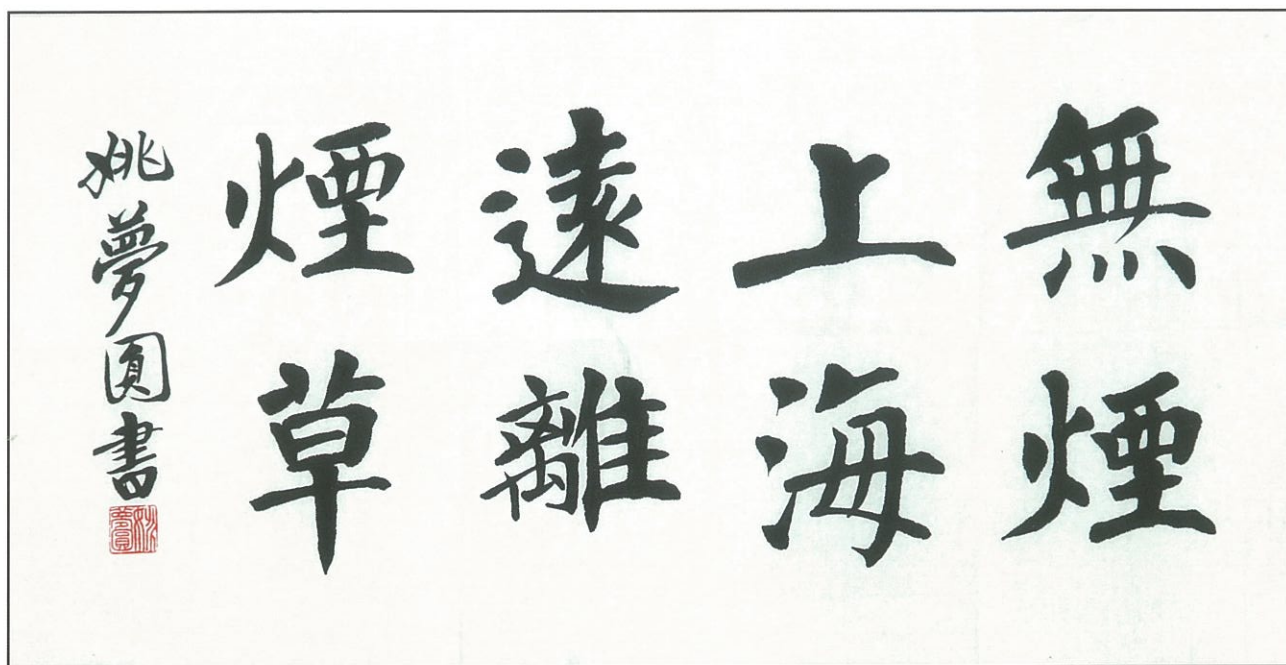 無煙
上海
遠離
煙草
姚夢圓書